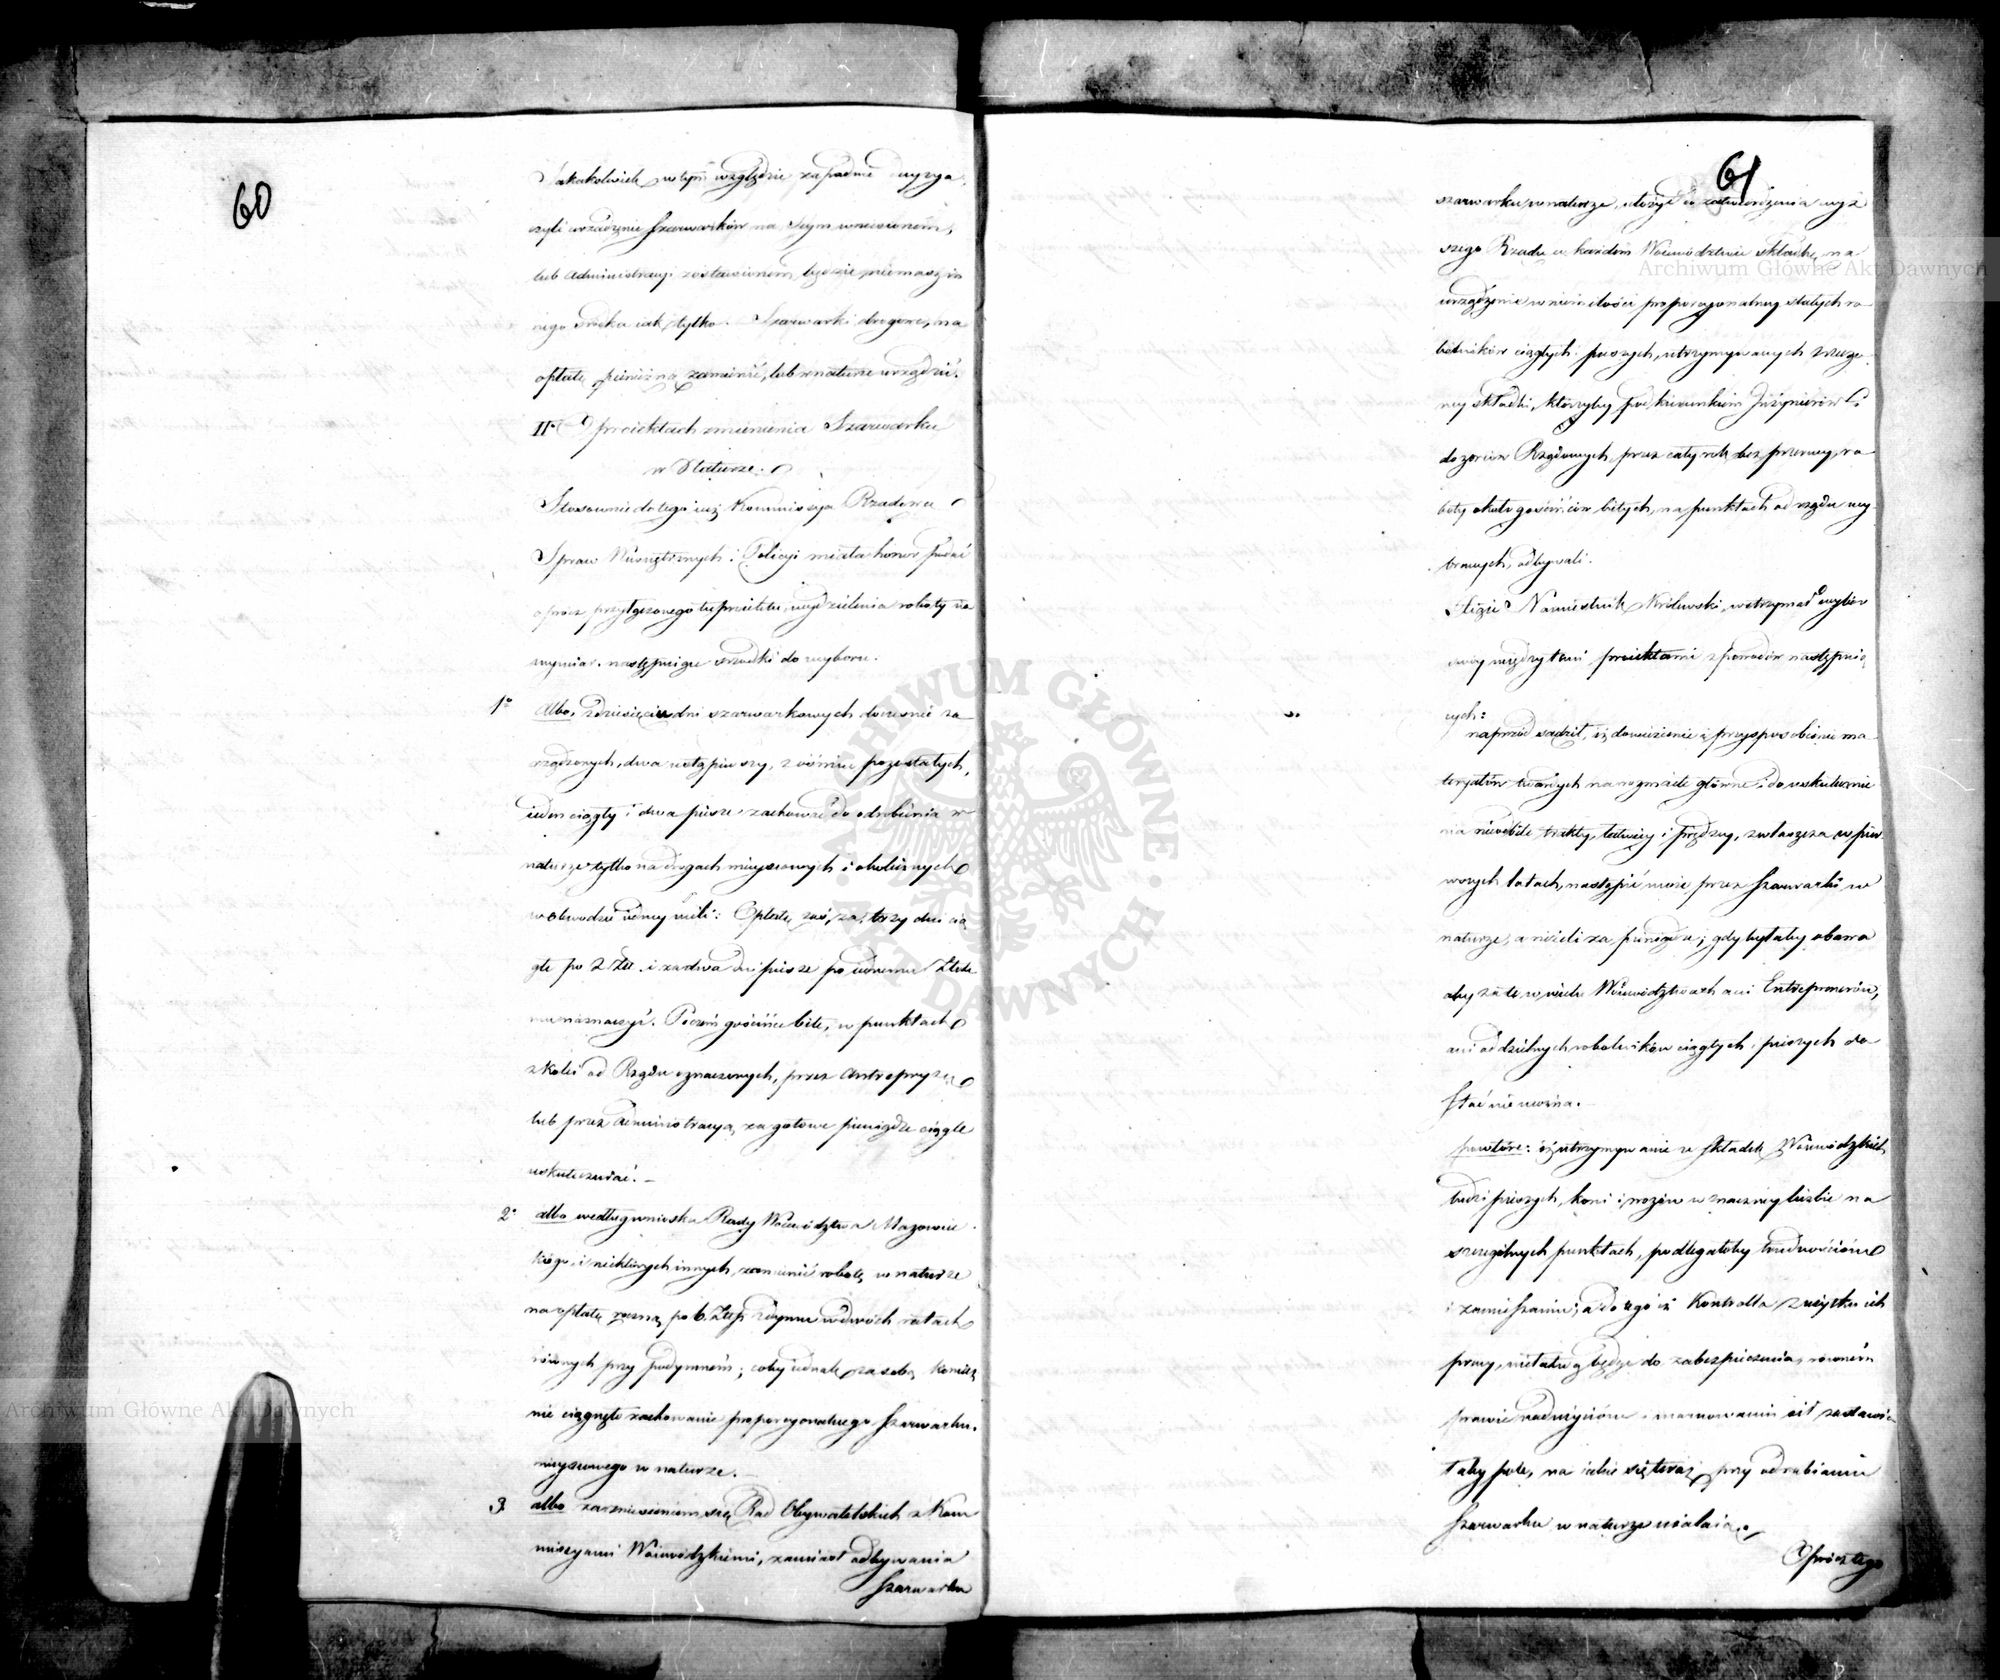 60
Jakakolwiek w tym względzie zapadnie decyzya
czyli urządzenie szarwarków na Seym wniesionem,
lub Administracyi zostawionem będzie niemasz in
nego środka iak tylko. Szarwarki drogowe, na
opłatę pieniężną zamienić, lub w naturze urządzić.
II. O proiektach zmienienia Szarwarku
w Naturze.
Stosownie do tego iuż Kommissya Rządowa
Spraw Wewnętrznych i Policyi miała honor podać
oprócz przyłączonego tu proiektu, wydzielenia roboty na
wymiar następuiące srzodki do wyboru.
1o Albo, z dziesięciu dni szarwarkowych docześnie za
rządzonych, dwa ustąpiwszy, z ośmiu pozostałych,
ieden ciągły i dwa piesze zachować do odrobienia w
naturze tylko na drogach mieyscowych i okolicznych
w obwodzie iedney mili: Opłatę zaś, za trzy dni cią
głe po 2 Złt. i za dwa dni piesze po iednemu Złote
mu naznaczyć. Poczem gościńce bite, w punktach
z kolei od Rządu oznaczonych, przez Antrepryzę
lub przez Administracyą za gotowe pieniądze ciągle
uskuteczniać. —
2o albo według wniosku Rady Województwa Mazowiec
kiego, i niektórych innych, zamienić robotę w naturze
na opłatę roczną po 6 Złtp z dymu w dwóch ratach
równych przy podymnem; coby iednak za sobą koniecz
nie ciągnęło zachowanie proporcyonalnego Szarwarku
mieyscowego w naturze. —
3. albo zarzniesieniem się Rad Obywatelskich z Kom
missyami Woiewódzkiemi, zamiast odbywania
Szarwarku
61
szarwarku w naturze, ułożyć do zatwierdzenia wyż
szego Rządu w każdem Woiewództwie składkę na
urządzenie w niem ilości proporcyonalney stałych ro
botników ciągłych i pieszych, utrzymywanych z rocz
ney składki, którzyby pod kierunkiem Inżynierów i
dozorców Rządowych, przez cały rok bez przerwy, ro
boty około gościńców bitych, na punktach od rządu wy
branych, odbywali.
Xiąże Namiestnik Królewski, wstrzymał wybór
swóy między temi proiektami z powodów następuią
cych:
naprzód sądził, iż dowiezienie i przysposobienie ma
teryałów twardych na rozmaite główne i do uskutecznie
nia niebite trakty, łatwiey i prędzey, zwłaszcza w pier
wszych latach, nastąpić może przez Szarwarki w
naturze, a niżeli za pieniądze; gdy byłaby obawa
aby za te w wielu Woiewództwach ani Entreprenerów,
ani oddzielnych robotników ciągłych i pieszych do
stać nie można. —
powtóre: iż utrzymywanie ze składek Woiewódzkich
ludzi pieszych, koni i wozów w znaczney liczbie na
szczególnych punktach, podlegałoby trudnościom
i zamieszaniu; a do tego iż Kontrolla z użytku ich
pracy, nietaka będąc do zabezpieczenia, równem
prawie nadużyciom i marnowaniu sił zostawia
łaby pole, na iakie się teraz przy odrabianiu
Szarwarku w naturze użalaią.
Oprócz tego
Archiwum Główne Akt Dawnych
Archiwum Główne Akt Dawnych
ARCHIWUM GŁÓWNE AKT DAWNYCH